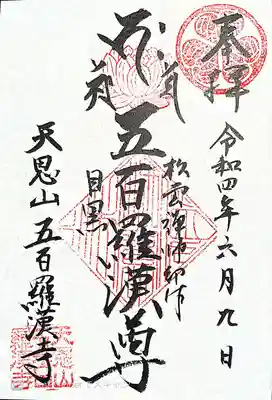 奉拝
令和四年六月九日
松雲禅師御作
五百羅漢尊
目黒
天恩山 五百羅漢寺